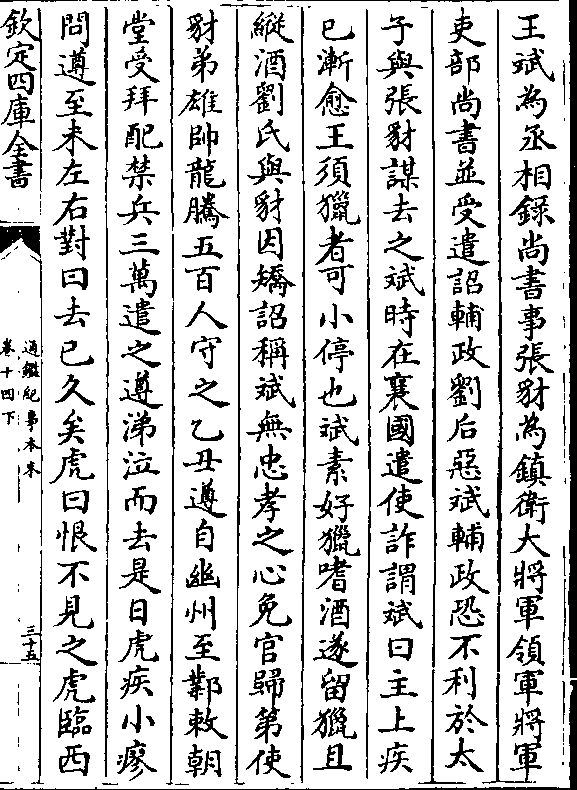 王斌為丞相錄尚書事張豺為鎮衛大將軍領軍將軍
吏部尚書並受遺詔輔政劉后惡斌輔政恐不利於太
子與張豺謀去之斌時在襄國遣使詐謂斌曰主上疾
已漸愈王須獵者可小停也斌素好獵嗜酒遂留獵且
縱酒劉氏與豺因矯詔稱斌無忠孝之心免官歸第使
豺弟雄帥龍騰五百人守之乙丑遵自幽州至鄴敕朝
堂受拜配禁兵三萬遣之遵涕泣而去是日虎疾小瘳
問遵至未左右對曰去已久矣虎曰恨不見之虎臨西
欽定四庫全書
通鑑紀事本末
卷十四下
三十五